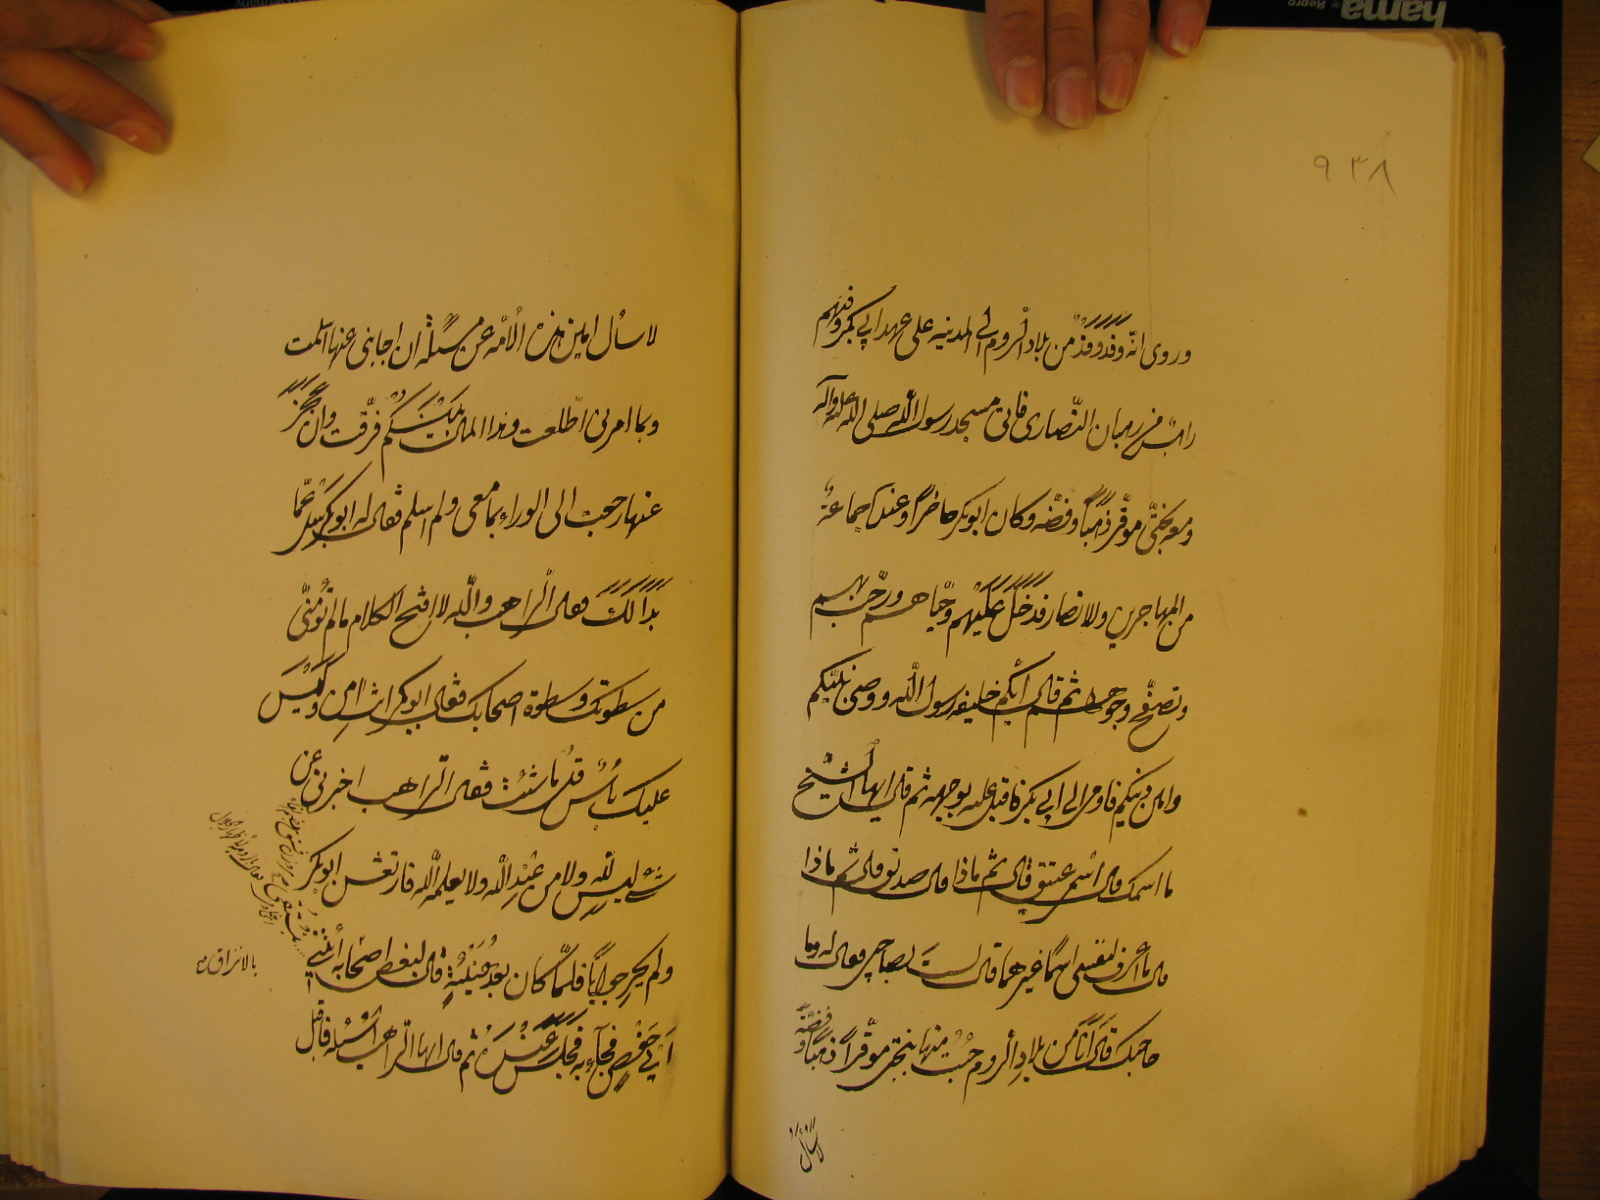 hama
Repro
٩٣٨
وروى انّه وفد وفدٌ من بلاد الروم الى المدينه على عهد ابى بكر وفيهم
راهب من رهبان النّصارى فاتى مسجد رسول اللّه صلى اللّه عليه وآله
ومعه بختىّ موقّر ذهباً وفضّه وكان ابوبكر حاضراً وعنده جماعة
من المهاجرين والانصار فدخل عليهم وحيّاهم ورحّب بهم
وتصفّح وجوههم ثم قال ايّكم خليفه رسول اللّه ووصىّ نبيّكم
وامين دينكم فاومى الى ابى بكر فاقبل عليه بوجهه ثم قال ايها الشّيخ
ما اسمك قال اسمى عتيق قال ثم ماذا قال صديق قال ثم ماذا
قال ما اعرف لنفسى اسماً غيرهما قال لست بصاحبى فقال له وما
حاجتك قال انا من بلاد الروم جئت منها ببختى موقّراً ذهباً وفضّه
لاسال
لاسال امين هذه الامّه عن مسئلة ان اجابنى عنها اسلمت
وبما امرنى اطّلعت وهذا المال بينكم فرّقت وان عجز
عنها رجعت الى الوراء بما معى ولم اسلم فقال له ابوبكر سل عمّا
بدا لك فقال الراهب واللّه لا افتح الكلام ما لم تؤمنّى
من سطوتك وسطوة اصحابك فقال ابوبكر انت امن وليس
عليك باس قل ما شئت فقال الراهب اخبرنى عن
شىء ليس للّه ولا من عند اللّه ولا يعلمه اللّه فارتعش ابوبكر
ولم يحر جواباً فلمّا كان بعد هنيئة قال لبعض اصحابه ائتنى
بابى حفص فجاء به فجلس عنده ثم قال ايها الراهب اسئله فاقبل